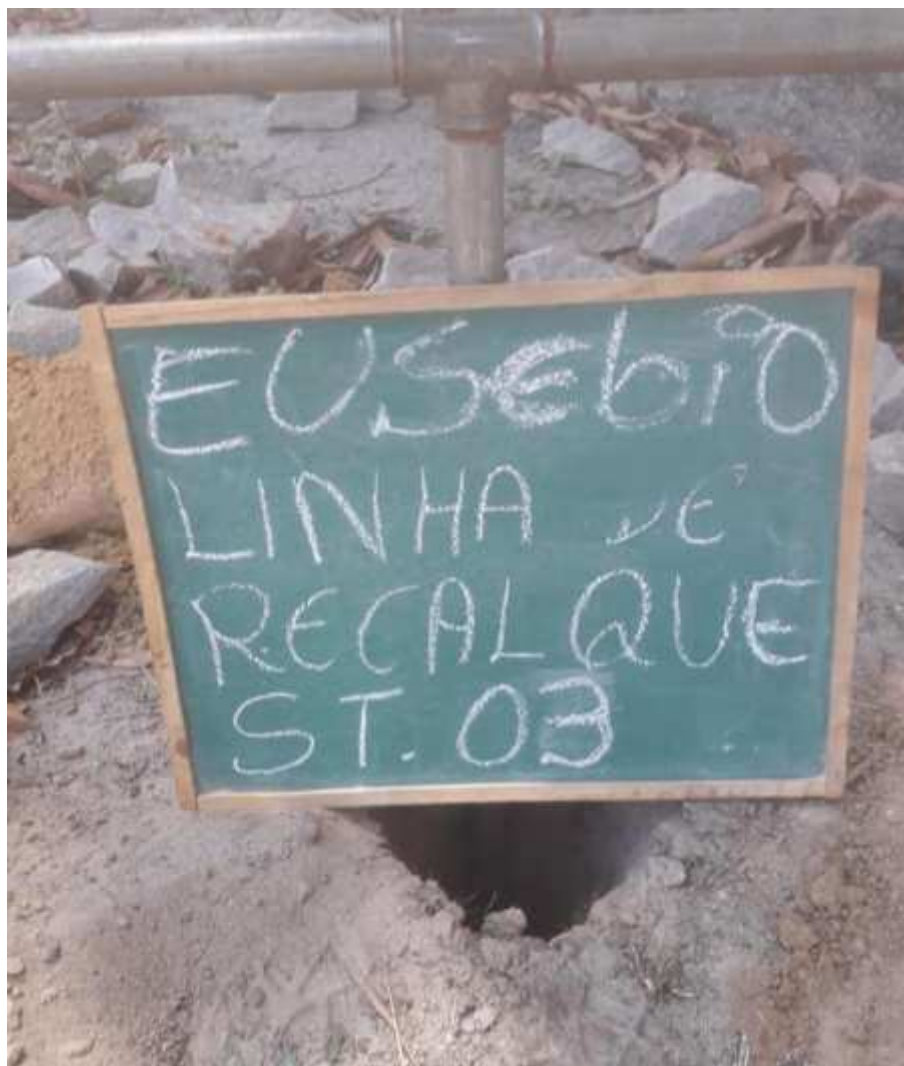 EUSEbiO
LINHA DE
RECALQUE
ST. 03